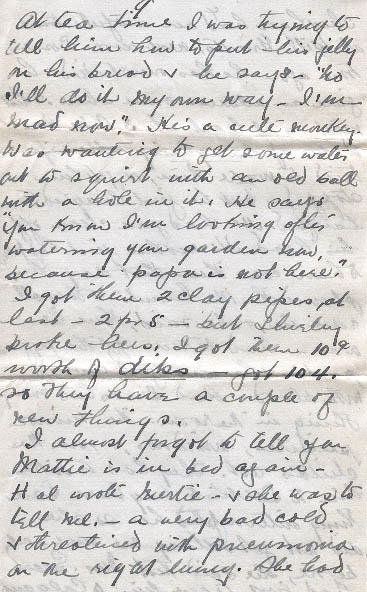 At tea time I was trying to
tell him how to put his jelly
on his bread & he says - "No
I'll do it my own way - I'm
mad now". He's a cute monkey.
Was wanting to get some water
out to squirt with an old ball
with a hole in it. He says
"you know I'm looking after
watering your garden now,
because papa is not here."
I got them 2 clay pipes at
last - 2 for 5 - but Shirley
broke hers. I got them 10¢
worth of diks - got 104.
so they have a couple of
new things.
I almost forgot to tell you
Mattie is in bed again -
Hal wrote Mertie - & she was to
tell me. - a very bad cold
& threatened with pneumonia
on the right lung. She had